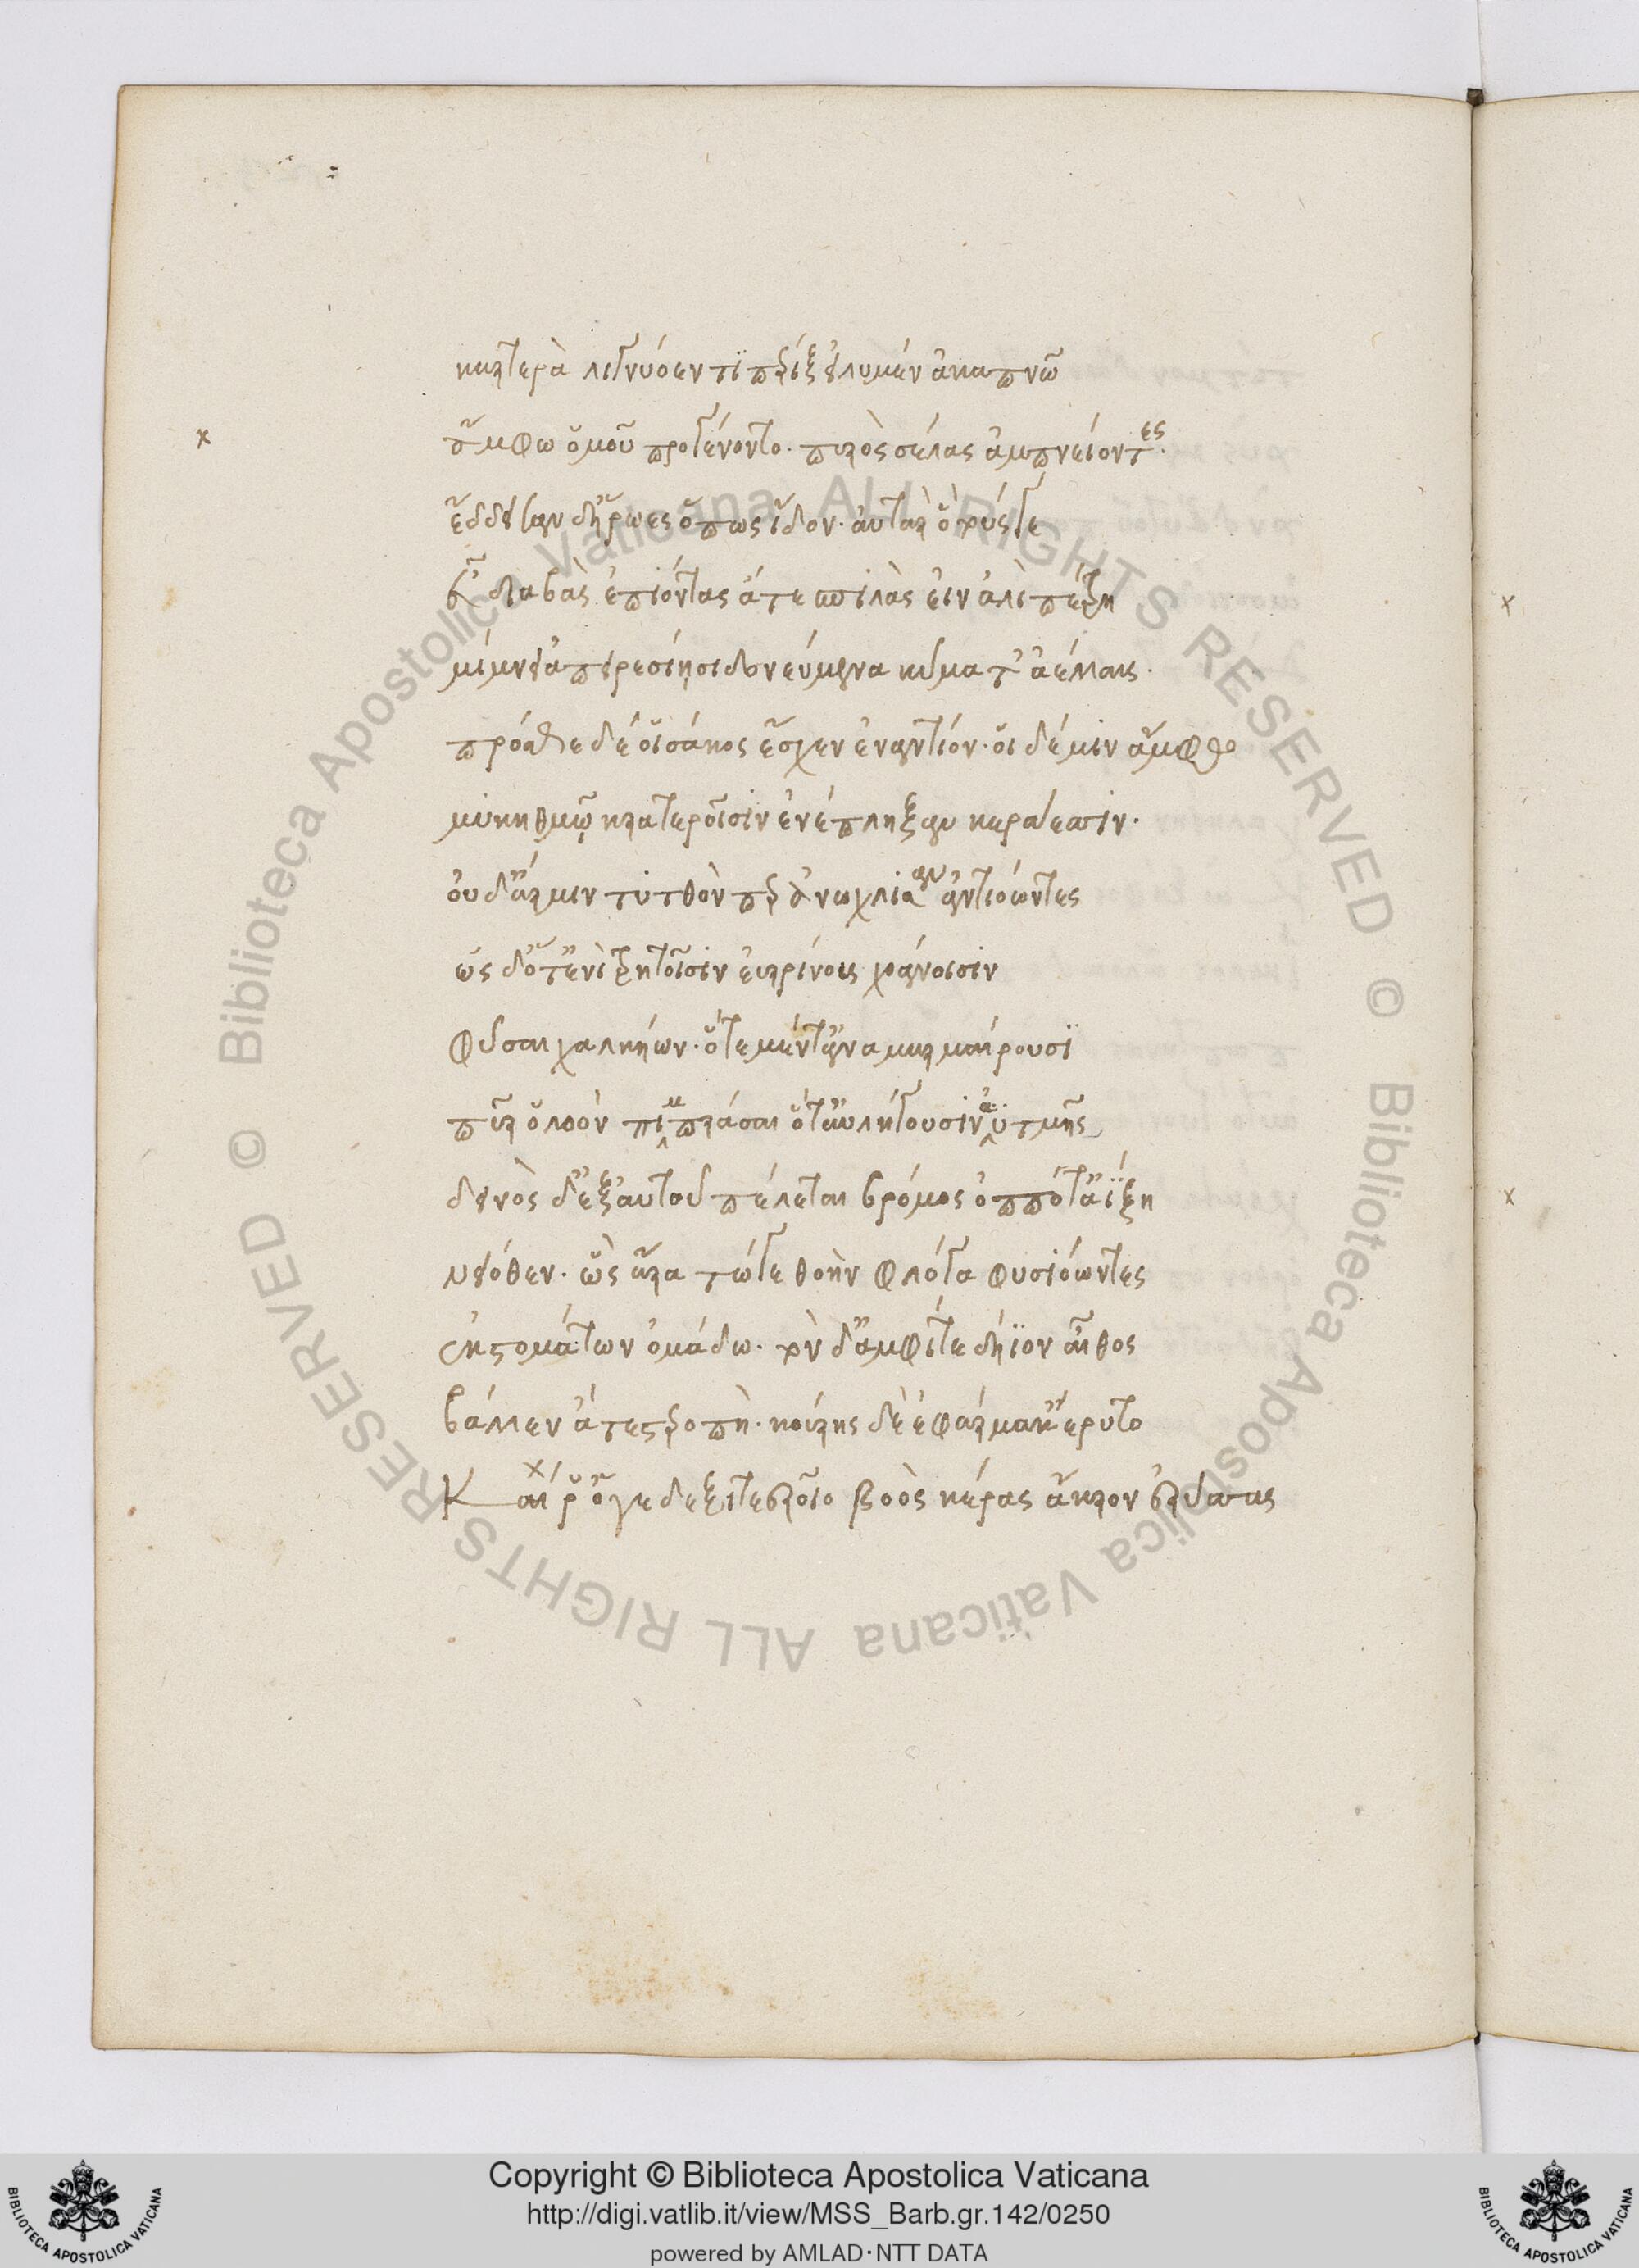 καρτερὰ λιγνυόεντι πέριξ εἰλυμέν' ἀκαπνῶ
ἄμφω ὁμοῦ προγένοντο. πυρὸς σέλας ἀμπνείοντες.
ἔδδεισαν δ' ἥρωες ὅπως ἴδον. αὐτὰρ ὁ τούς γε
εὖ διαβὰς ἐπιόντας ἅτε σπιλὰς εἰν ἁλὶ πέτρη
μίμνει ἀπειρεσίησι δονεύμενα κύματ' ἀέλλαις.
πρόσθε δέ οἱ σάκος ἔσχεν ἐναντίον. οἱ δέ μιν ἄμφω
μυκηθμῷ κρατεροῖσιν ἐνέπληξαν κεράεσσιν.
οὐδ' ἄρα μιν τυτθὸν περ ἀνώχλισαν ἀντιόωντες
ὡς δ' ὅτ' ἐνὶ τρητοῖσιν ἐυρρίνοις χοάνοισιν
φῦσαι χαλκήων. ὁτὲ μέν τ' ἀναμαρμαίρουσι
πῦρ ὀλοὸν πιμπρᾶσαι ὅτ' αὖ λήγουσιν ἀϋτμῆς
δεινὸς δ' ἐξ αὐτοῦ πέλεται βρόμος ὁππότ' ἀΐξη
νειόθεν. ὣς ἄρα τώγε θοὴν φλόγα φυσιόωντες
ἐκ στομάτων ὁμάδω. τὸν δ' ἄμφί τε δήϊον αἶθος
βάλλεν ἅτε στεροπή. κούρης δέ ἑ φάρμακ' ἔρυτο
Καί ῥ' ὅγε δεξιτεροῖο βοὸς κέρας ἄκρον ἐρύσσας
Copyright © Biblioteca Apostolica Vaticana
http://digi.vatlib.it/view/MSS_Barb.gr.142/0250
powered by AMLAD·NTT DATA
© Biblioteca Apostolica Vaticana ALL RIGHTS RESERVED
© Biblioteca Apostolica Vaticana ALL RIGHTS RESERVED
BIBLIOTECA APOSTOLICA VATICANA
BIBLIOTECA APOSTOLICA VATICANA